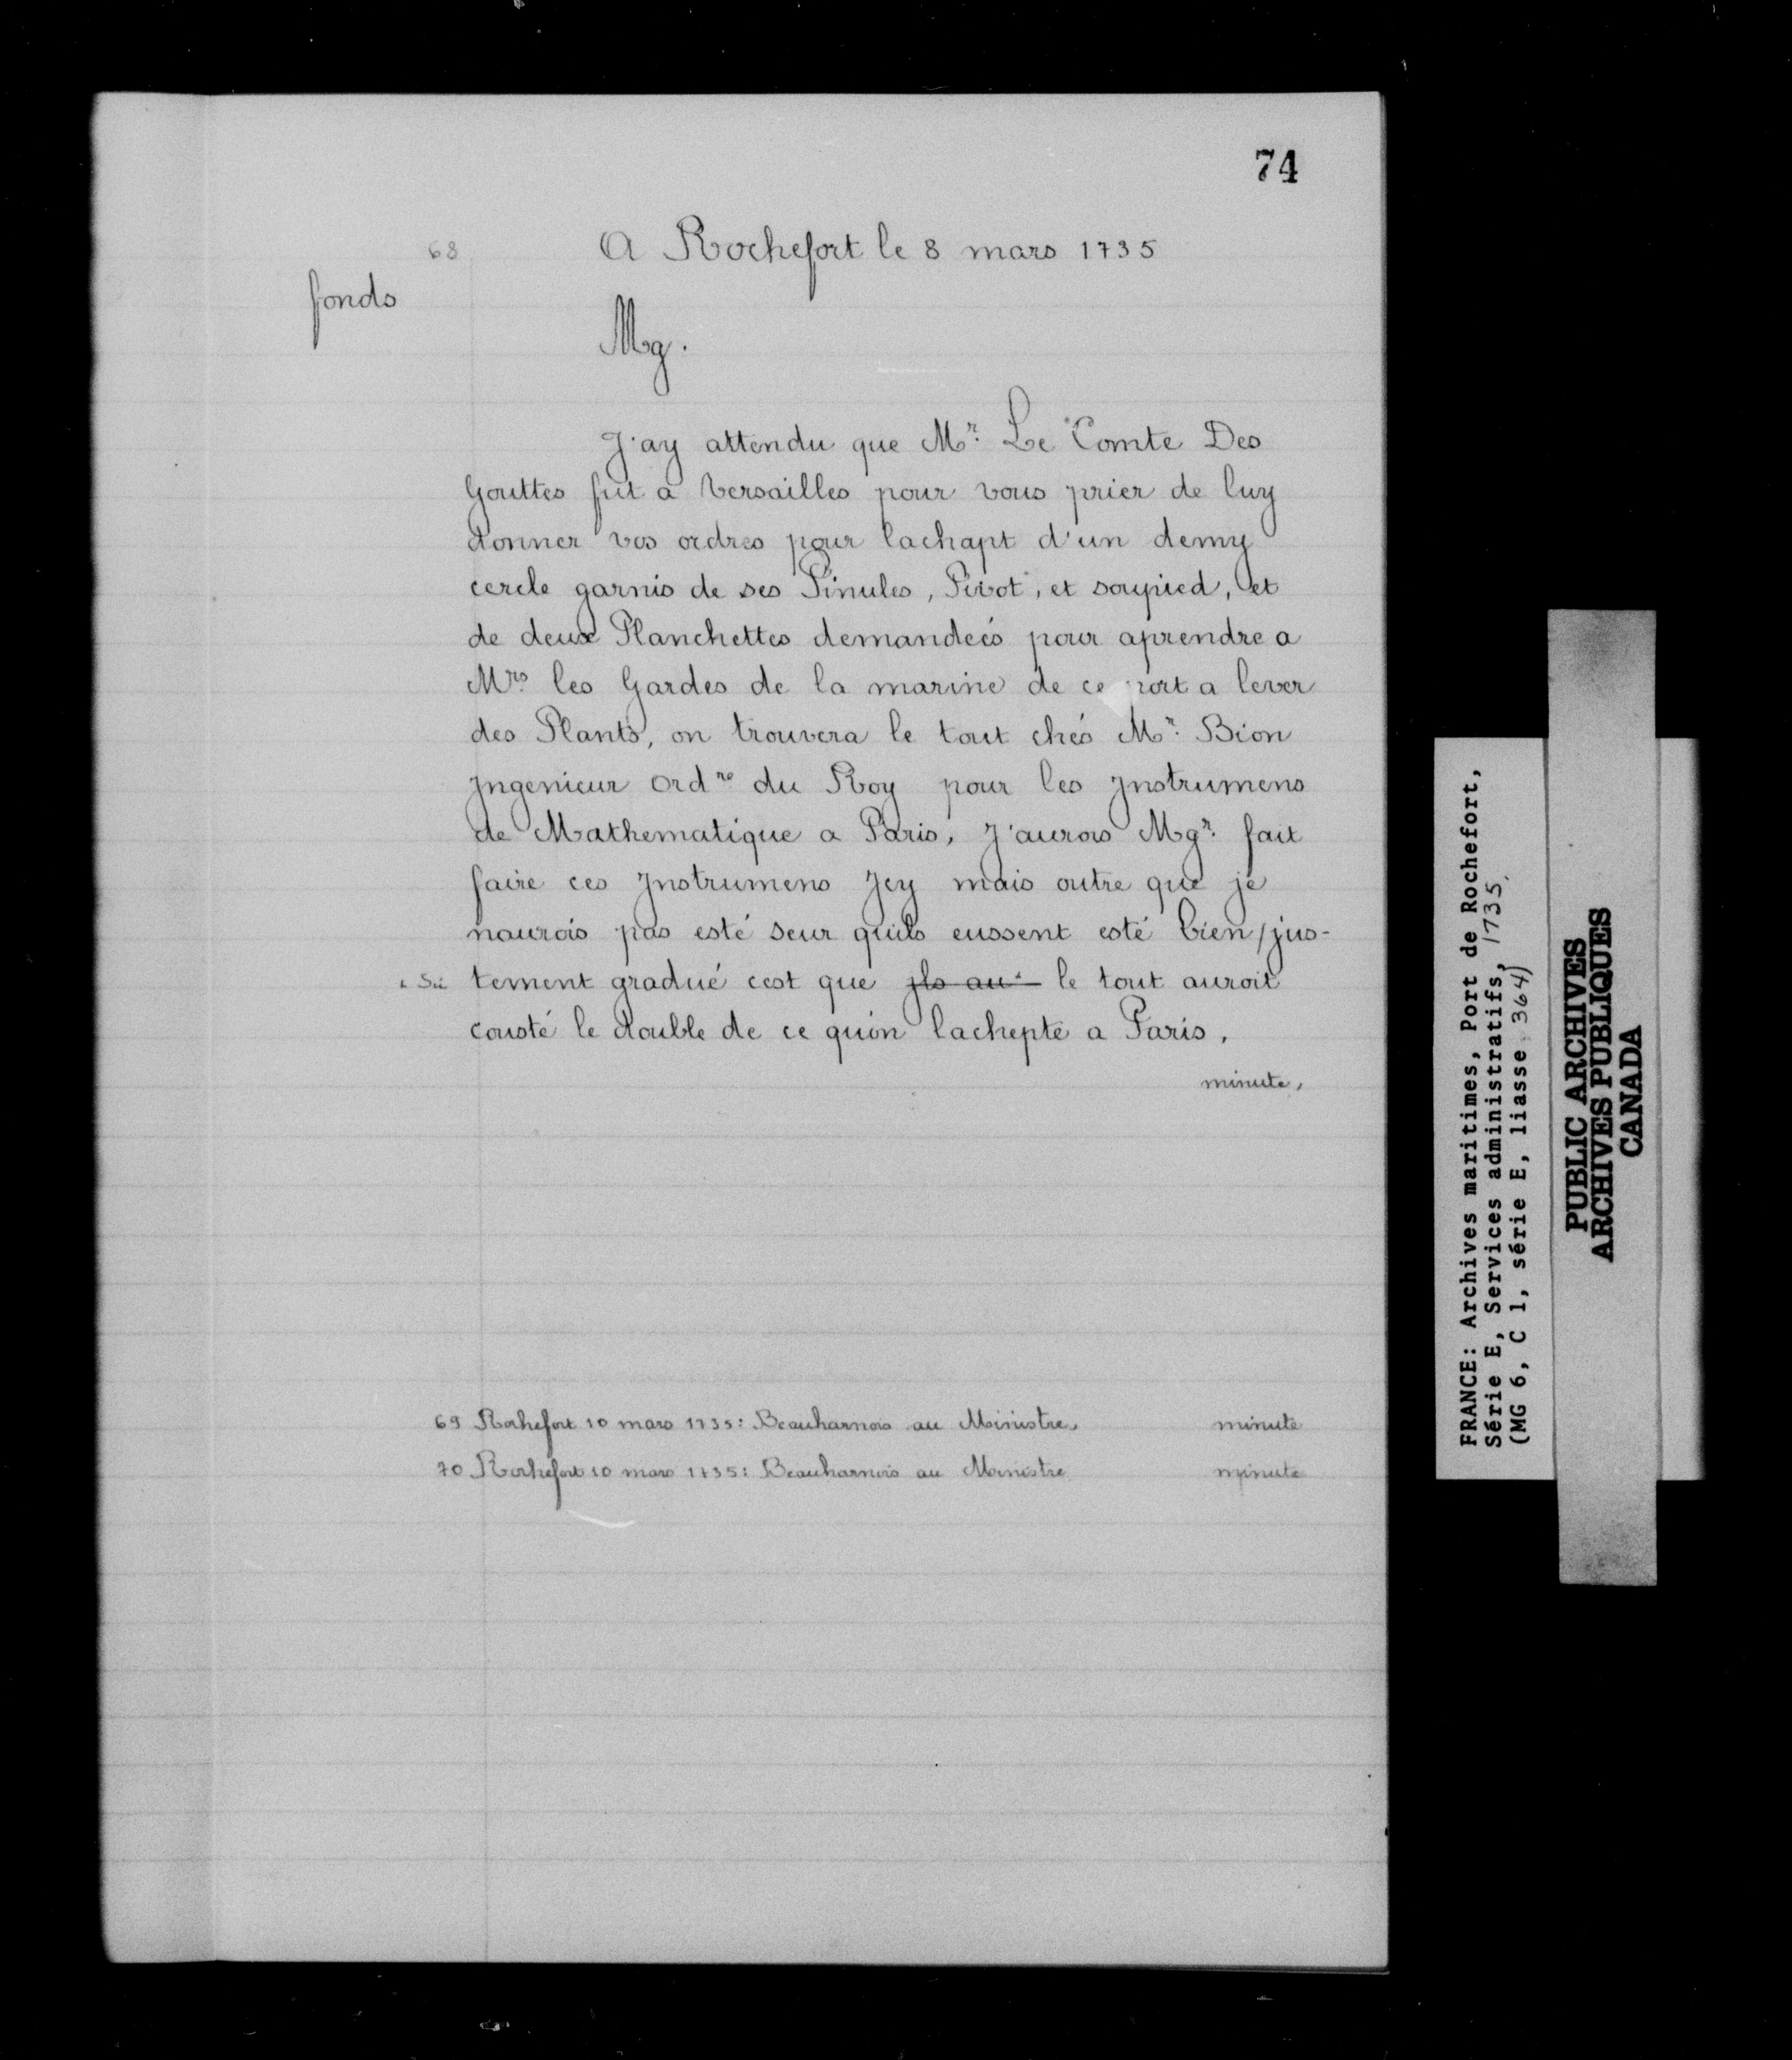 74
68
A Rochefort le 8 mars 1735
fonds
Mg.
J'ay attendu que Mr. Le Comte Des
Gouttes fut a Versailles pour vous prier de luy
donner vos ordres pour lachapt d'un demy
cercle garnis de ses Pinules, Pivot, et soupied, et
de deux Planchettes demandeés pour aprendre a
Mrs les Gardes de la marine de ce port a lever
des Plants, on trouvera le tout chés Mr. Bion
Jngenieur ordre du Roy pour les Jnstrumens
de Mathematique a Paris, J'aurois Mgr. fait
faire ces Jnstrumens Jcy mais outre que je
naurois pas esté seur quils eussent esté bien/jus-
tement gradué cest que jls au. le tout auroit
cousté le double de ce quon lachepte a Paris.
minute,
69 Rochefort 10 mars 1735: Beauharnois au Ministre, minute
70 Rochefort 10 mars 1735: Beauharnois au Ministre minute
FRANCE: Archives maritimes, Port de Rochefort,
Série E, Services administratifs, 1735.
(MG 6, C 1, série E, liasse 364)
PUBLIC ARCHIVES
ARCHIVES PUBLIQUES
CANADA